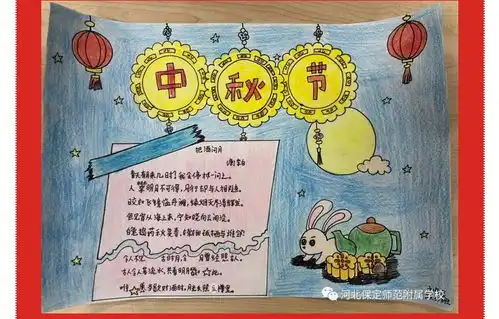 中秋节
把酒问月
李白
人攀明月不可得,月行却与人相随。
皎如飞镜临丹阙,绿烟灭尽清辉发。
但见宵从海上来,宁知晓向云间没。
白兔捣药秋复春,嫦娥孤栖与谁邻
今人不见古时月,今月曾经照古人。
古人今人若流水,共看明月皆如此。
对酒时,月光长照金樽里。
河北保定师范附属学校